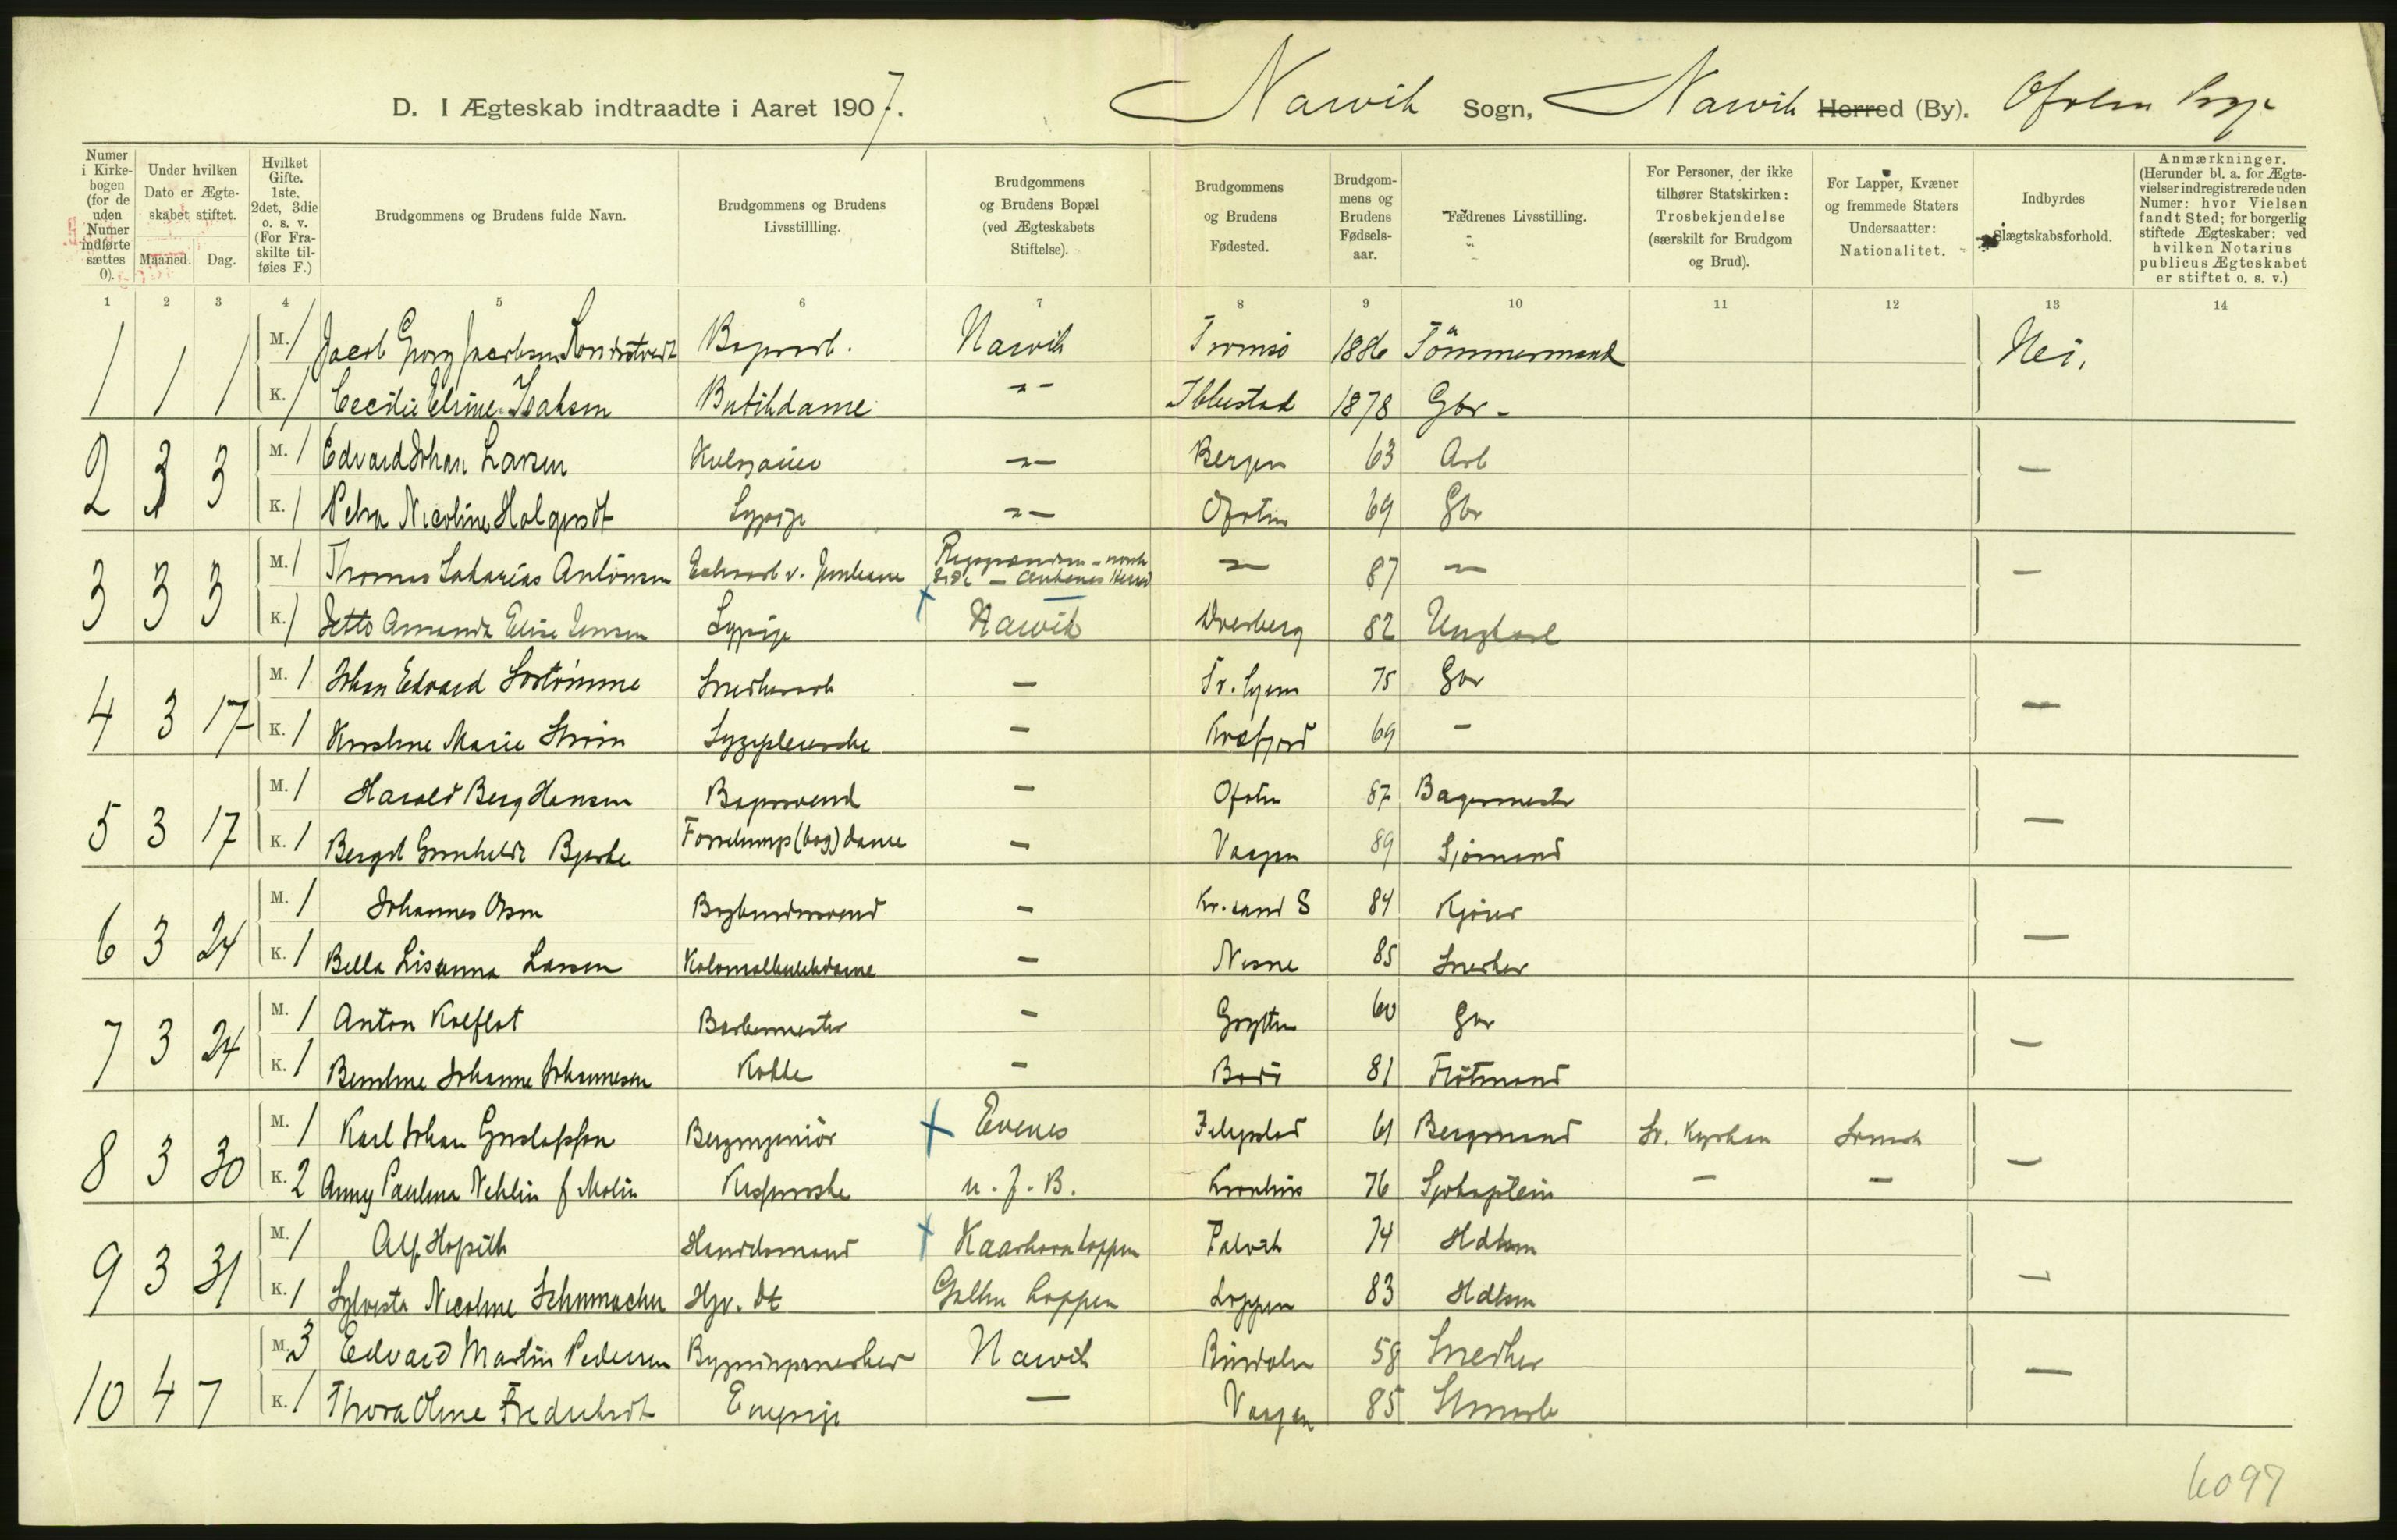 D. I Ægteskab indtraadte i Aaret 1907. Narvik Sogn, Narvik Herred (By). Ofoten
Numer i Kirkebogen (for de uden Numer indførte sættes 0).
Under hvilken Dato er Ægteskabet stiftet.
Maaned. Dag.
Hvilket Gifte. 1ste, 2det, 3die o. s. v. (For Fraskilte tilføies F.)
Brudgommens og Brudens fulde Navn.
Brudgommens og Brudens Livsstillling.
Brudgommens og Brudens Bopæl (ved Ægteskabets Stiftelse).
Brudgommens og Brudens Fødested.
Brudgommens og Brudens Fødselsaar.
Fædrenes Livsstilling.
For Personer, der ikke tilhører Statskirken: Trosbekjendelse (særskilt for Brudgom og Brud).
For Lapper, Kvæner og fremmede Staters Undersaatter: Nationalitet.
Indbyrdes Slægtskabsforhold.
Anmærkninger. (Herunder bl. a. for Ægtevielser indregistrerede uden Numer: hvor Vielsen fandt Sted; for borgerlig stiftede Ægteskaber: ved hvilken Notarius publicus Ægteskabet er stiftet o. s. v.)
1 2 3 4 5 6 7 8 9 10 11 12 13 14
1 1 1 M. 1 Jacob Georg Jacobsen Narvik Tromsö 1886 Tömmermand Nei.
K. 1 Cecilie Elrine Isaksen Butikdame -"- Ibbestad 1878 Gbr -
2 3 3 M. 1 Edvard Johan Larsen -"- Bergen 63 Arb —
K. 1 Petra Nicoline Holgersdt Sypige -"- Ofoten 69 Gbr
3 3 3 M. 1 Thomas Sakarias Antonsen -"- 87 -"- —
K. 1 Jette Amanda Elise Jensen Sypige Narvik Dverberg 82 Ungkarl
4 3 17 M. 1 Johan Edvard Snedkerarb — 75 Gbr —
K. 1 Kristine Marie Ström — Kvæfjord 69 —
5 3 17 M. 1 Harald Berg Hansen Bagersvend — Ofoten 87 Bagermester —
K. 1 Bergit Gunhilda Bjerke Forretnings(bog)dame — Vaagen 89 Sjömand
6 3 24 M. 1 Johannes Olsen Bogbindersvend — Kr.sand S 84 —
K. 1 Bella Lisanna Larsen Kolonialbutikdame — Nesne 85 Snedker
7 3 24 M. 1 Anton Kolflot Barbermester — Grytten 60 Gbr —
K. 1 Berntine Johanne Johannesen Kokke — Bodö 81
8 3 30 M. 1 Karl Johan Gustafsson Bergingeniör Evenes Filipstad 61 Bergmand Svensk —
K. 2 Anny Paulina Nehlin f Molin u. f. B. 76 Sjökaptein — —
9 3 31 M. 1 Alf Handelsmand Talvik 74 Hdlsm —
K. 1 Sylvesta Nicoline Schumacher Hjv. dt Loppen Loppen 83 Hdlsm
10 4 7 M. 3 Edvard Martin Pedersen Bygningssnedker Narvik Rindalen 58 Snedker —
K. 1 Thora Oline Fredriksdt — Vaagen 85
6097